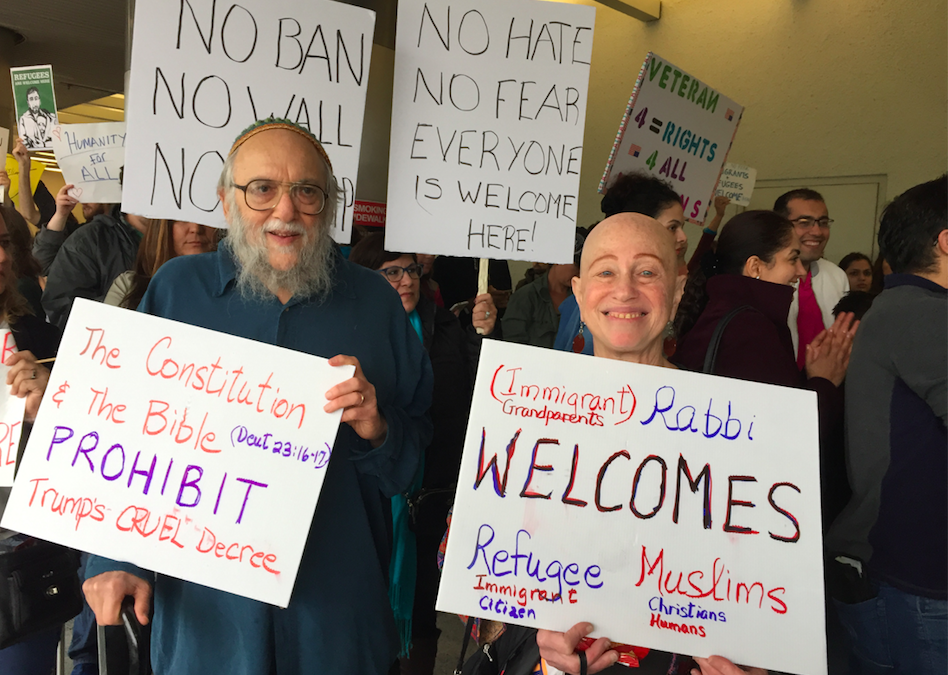 REFUGEES
ARE WELCOME HERE
HUMANITY
FOR
ALL
NO BAN
NO WALL
NO
NO HATE
NO FEAR
EVERYONE
IS WELCOME
HERE!
VETERAN
4 = RIGHTS
4 ALL
REFUGEES
WELCOME
SMOKING
The Constitution
& The Bible (Deut 23:16-17)
PROHIBIT
Trump's CRUEL Decree
(Immigrant Grandparents) Rabbi
WELCOMES
Refugee
Immigrant
Citizen
Muslims
Christians
Humans